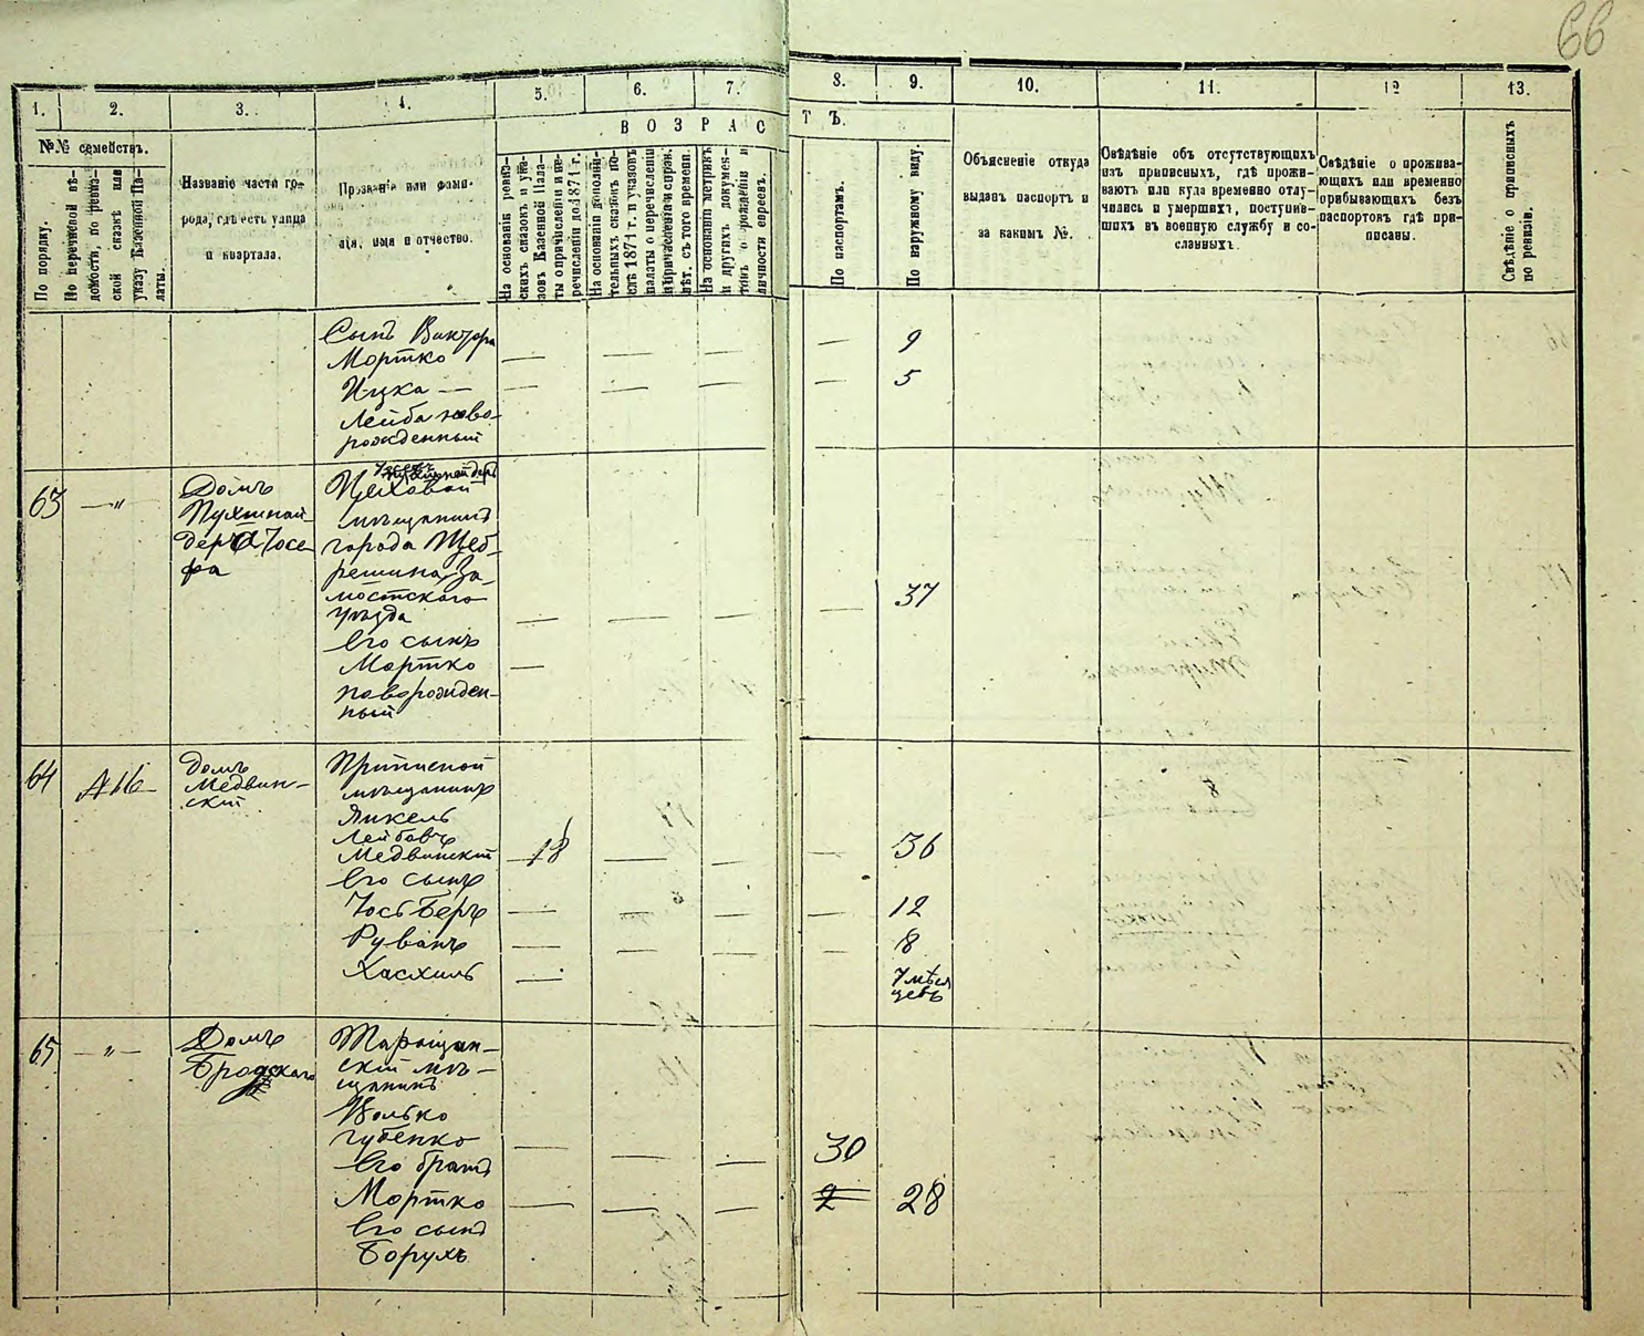 66
1. 2. 3. 4. 5. 6. 7. 8. 9. 10. 11. 12 13.
№№ семействъ.
По порядку.
По перечневой вѣ-
домости, по ревиз-
ской сказкѣ или
указу Казенной Па-
латы.
Названіе части го-
рода, гдѣ есть улица
и квартала.
Прозваніе или фами-
лія, имя и отчество.
ВОЗРАСТЪ.
На основаніи ревиз-
скихъ сказокъ и ука-
зовъ Казенной Пала-
ты о причисленіи и пе-
речисленіи до 1871 г.
На основаніи дополни-
тельныхъ сказокъ по-
слѣ 1871 г. и указовъ
палаты о перечисленіи
и причисленіи и справ.
лѣт. съ того времени.
На основаніи метрикъ
и другихъ докумен-
товъ о рожденіи и
личности евреевъ.
По паспортамъ.
По наружному виду.
Объясненіе откуда
выданъ паспортъ и
за какимъ №.
Свѣдѣніе объ отсутствующихъ
изъ приписныхъ, гдѣ прожи-
ваютъ или куда временно отлу-
чились и умершихъ, поступив-
шихъ въ военную службу и со-
сланныхъ.
Свѣдѣніе о прожива-
ющихъ или временно
прибывающихъ безъ
паспортовъ гдѣ при-
писаны.
Свѣдѣніе о приписныхъ
по ревизіи.
Сынъ Виктора
Мортко — — — — 9
Ицка — — — — — 5
Лейба ново-
рожденный
63 —"— Домъ
Пухтинай-
дера Іосе-
фа
Цеховой
мѣщанинъ
города Щеб-
решина, За-
мостскаго
уѣзда — — — — 37
Его сынъ
Мортко —
новорожден-
ный
64 Домъ
Медвин-
скій
Приписной
мѣщанинъ
Янкель
Лейбовъ
Медвинскій 18 — — — 36
Его сынъ
Іось Беръ — — — — 12
Рувинъ — — — — 8
Хасхиль — 7 мѣся
цевъ
65 —"— Домъ
Бродскаго
Таращан-
скій мѣ-
щанинъ
Волько
Губенко — — — 30
Его братъ
Мортко — — — 2 28
Его сынъ
Борухъ